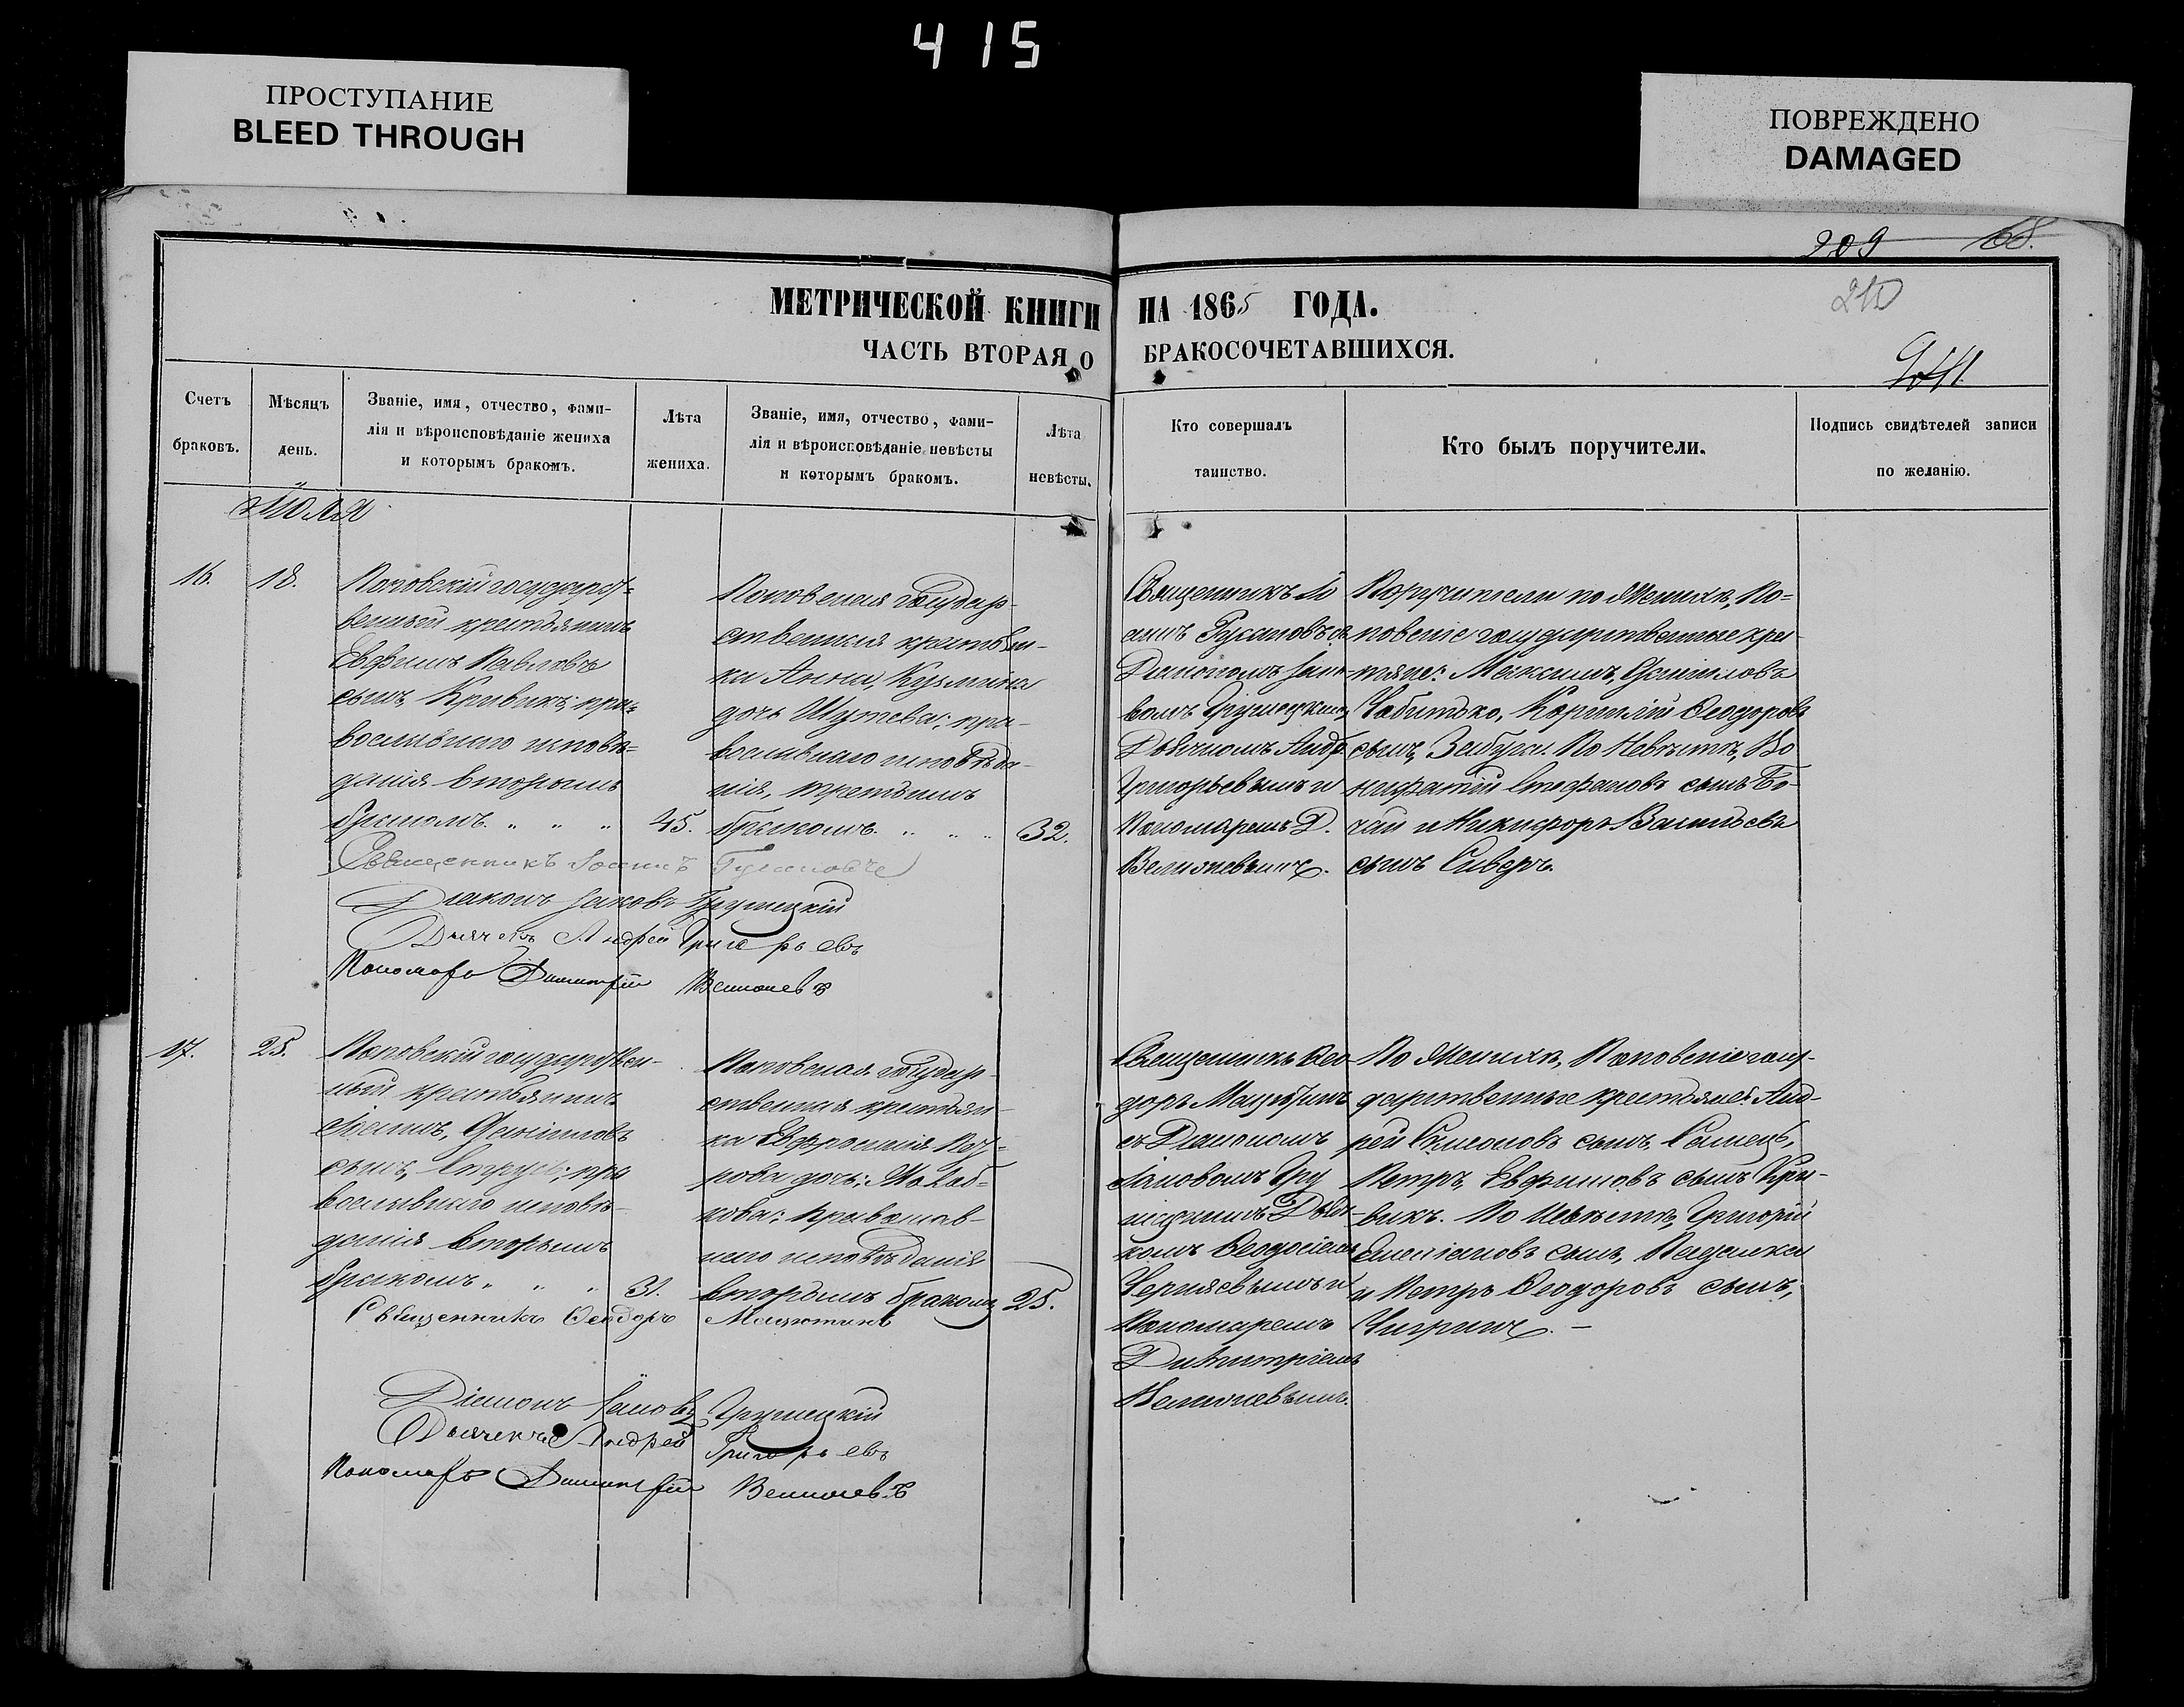 415
ПРОСТУПАНИЕ
BLEED THROUGH
ПОВРЕЖДЕНО
DAMAGED
209 68.
210
МЕТРИЧЕСКОЙ КНИГИ НА 1865 ГОДА.
ЧАСТЬ ВТОРАЯ О БРАКОСОЧЕТАВШИХСЯ.
Счетъ
браковъ.
Мѣсяцъ
день.
Званіе, имя, отчество, фами-
лія и вѣроисповѣданіе жениха
и которымъ бракомъ.
Лѣта
жениха.
Званіе, имя, отчество, фами-
лія и вѣроисповѣданіе невѣсты
и которымъ бракомъ.
Лѣта
невѣсты.
Кто совершалъ
таинство.
Кто былъ поручители.
Подпись свидѣтелей записи
по желанію.
Іюля
16.
18.
Поповскій государст=
венный крестьянинъ
Евфимъ Павловъ
сынъ, Кривикъ; пра=
вославнаго исповѣ=
данія вторымъ
бракомъ. " " "
45.
Поповская государ-
ственная крестьян-
ка Анна, Кузмина
дочь Шутева; пра-
вославнаго исповѣда-
нія, третьимъ
бракомъ. " " "
32.
Священникъ Іо
аннъ съ
Діакономъ Іако-
вомъ Грушецкимъ,
Дьячкомъ Андр.
Григорьевымъ и
Пономаремъ Д.
Поручители по Женихѣ, По=
повскіе государственные крес-
тьяне: Максимъ, Даніиловъ
Корнилій Ѳеодоровъ
сынъ, По Невѣстѣ, Во
нифатій Стефановъ сынъ Бо-
чай и Никифоръ Васильевъ
сынъ Сиверъ.
Священникъ Іоаннъ
Діаконъ Іаковъ Грушецкій
Дьячекъ Андрей Григорьевъ
Пономарь Димитрій
17.
25.
Поповскій государствен-
ный крестьянинъ
Іоаннъ, Даніиловъ
сынъ, пра
вославнаго исповѣ-
данія вторымъ
бракомъ. " " "
31.
Поповская государ-
ственная крестьян-
ка Евфросинія Пет-
рова дочь;
православ-
наго исповѣданія
вторымъ бракомъ
25.
Священникъ Ѳео
доръ
съ Діакономъ
Іаковомъ Гру
шецкимъ Дьяч-
комъ Ѳеодосіемъ
Черняевымъ и
Пономаремъ
Димитріемъ
По Женихѣ, Поповскіе госу-
дарственные крестьяне: Анд-
рей Симоновъ сынъ,
Петръ, Евфимовъ сынъ Кри-
викъ. По Невѣстѣ, Григорій
сынъ,
и Петръ Ѳеодоровъ сынъ,
Чигринъ. –
Священникъ Ѳеодоръ
Діаконъ Іаковъ Грушецкій
Дьячекъ Андрей Григорьевъ
Пономарь Димитрій